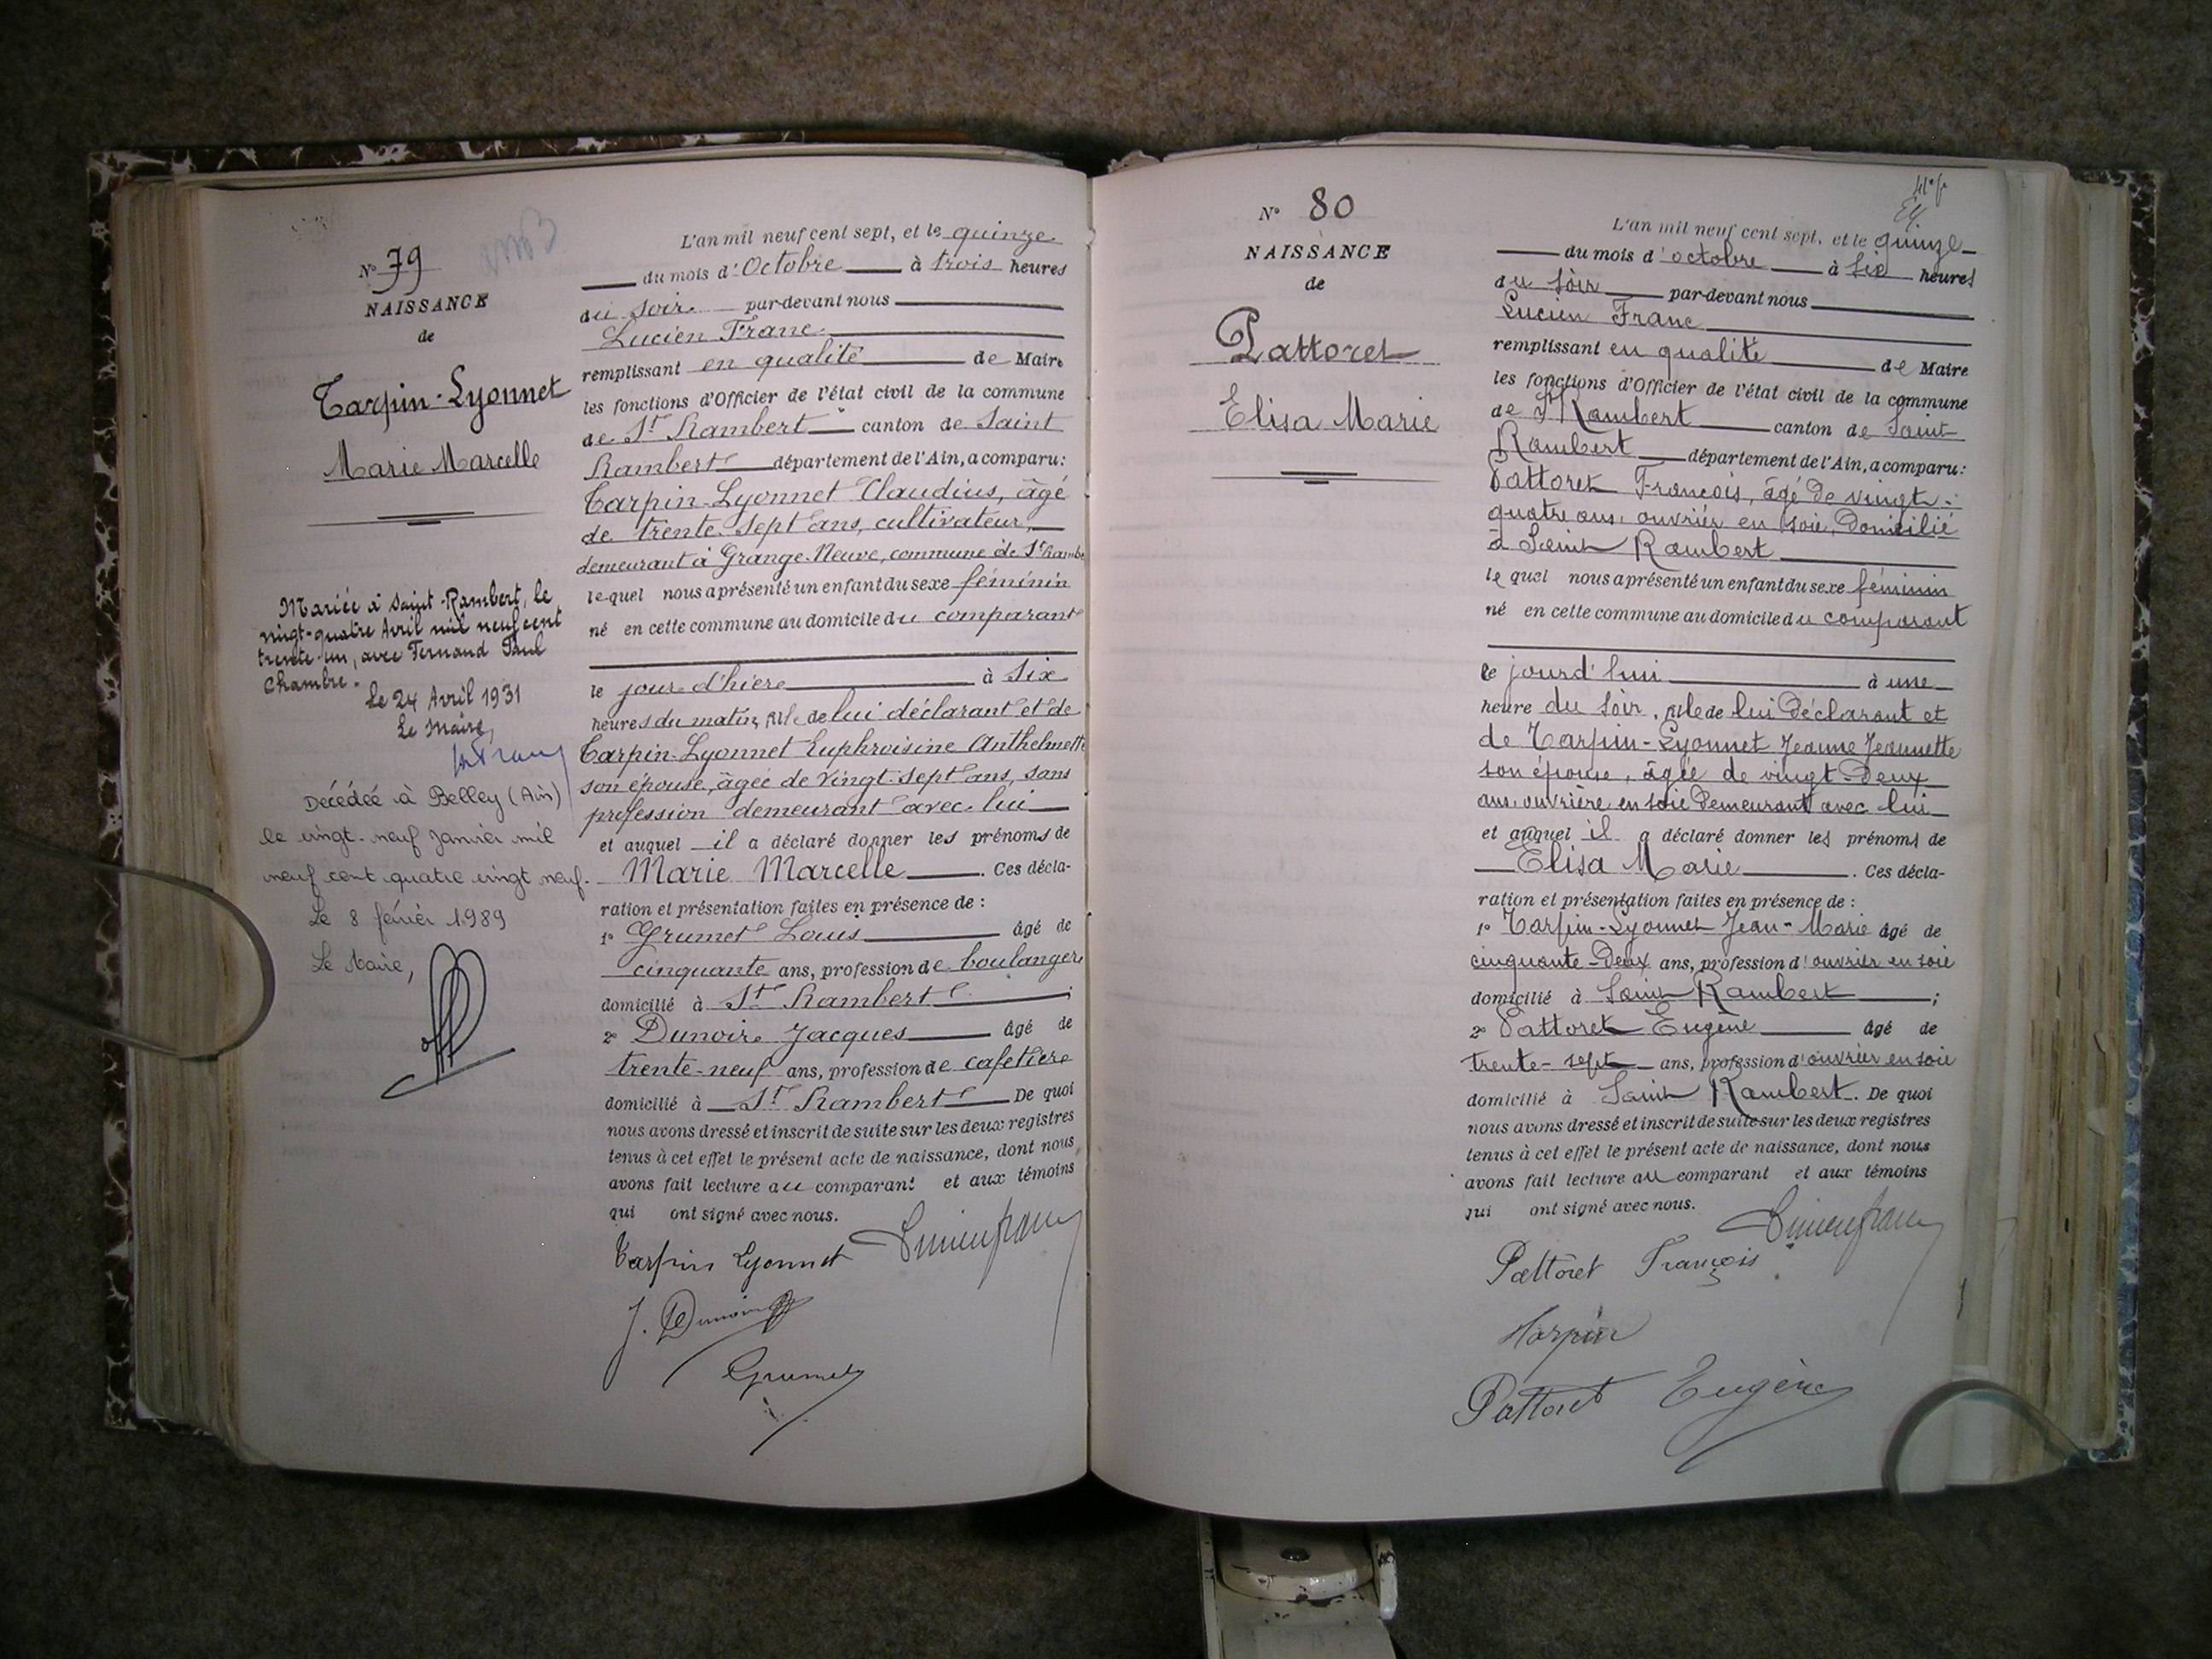 N° 79
NAISSANCE
de
Tarpin-Lyonnet
Marie Marcelle
Mariée à Saint-Rambert, le
vingt-quatre Avril mil neuf cent
trente un, avec Fernand Paul
Chambre.
Le 24 Avril 1931
Le Maire,
Décédée à Belley (Ain)
le vingt-neuf Janvier mil
neuf cent quatre vingt neuf.
Le 8 février 1989
Le Maire,
L'an mil neuf cent sept, et le quinze
du mois d'Octobre à trois heures
du soir par-devant nous
Lucien Franc
remplissant en qualité de Maire
les fonctions d'Officier de l'état civil de la commune
de St Rambert canton de Saint
Rambert département de l'Ain, a comparu:
Tarpin-Lyonnet Claudius, âgé
de trente-sept ans, cultivateur,
demeurant à Grange-Neuve, commune de St Rambe
lequel nous a présenté un enfant du sexe féminin
né en cette commune au domicile du comparant
le jour d'hier à six
heures du matin, fille de lui déclarant et de
Tarpin-Lyonnet Euphroisine Anthelmette
son épouse, âgée de vingt-sept ans, sans
profession demeurant avec lui
et auquel il a déclaré donner les prénoms de
Marie Marcelle. Ces décla-
ration et présentation faites en présence de :
1° Grumet Louis âgé de
cinquante ans, profession de boulanger
domicilié à St Rambert ;
2° Dunoir Jacques âgé de
trente-neuf ans, profession de cafetier
domicilié à St Rambert De quoi
nous avons dressé et inscrit de suite sur les deux registres
tenus à cet effet le présent acte de naissance, dont nous
avons fait lecture au comparant et aux témoins
qui ont signé avec nous.
Tarpin Lyonnet Lucien Franc
J. Dunoir
Grumet
N° 80
NAISSANCE
de
Pattoret
Elisa Marie
L'an mil neuf cent sept, et le quinze
du mois d'octobre à six heures
du soir par-devant nous
Lucien Franc
remplissant en qualité de Maire
les fonctions d'Officier de l'état civil de la commune
de St Rambert canton de Saint
Rambert département de l'Ain, a comparu:
Pattoret François, âgé de vingt-
quatre ans, ouvrier en soie, domicilié
à Saint Rambert
lequel nous a présenté un enfant du sexe féminin
né en cette commune au domicile du comparant
le jourd'hui à une
heure du soir, fille de lui déclarant et
de Tarpin-Lyonnet Jeanne Jeannette
son épouse, âgée de vingt-deux
ans, ouvrière en soie demeurant avec lui
et auquel il a déclaré donner les prénoms de
Elisa Marie. Ces décla-
ration et présentation faites en présence de :
1° Tarpin-Lyonnet Jean-Marie âgé de
cinquante-deux ans, profession d'ouvrier en soie
domicilié à Saint Rambert ;
2° Pattoret Eugène âgé de
trente-sept ans, profession d'ouvrier en soie
domicilié à Saint Rambert. De quoi
nous avons dressé et inscrit de suite sur les deux registres
tenus à cet effet le présent acte de naissance, dont nous
avons fait lecture au comparant et aux témoins
qui ont signé avec nous.
Lucien Franc
Pattoret François
Tarpin
Pattoret Eugène